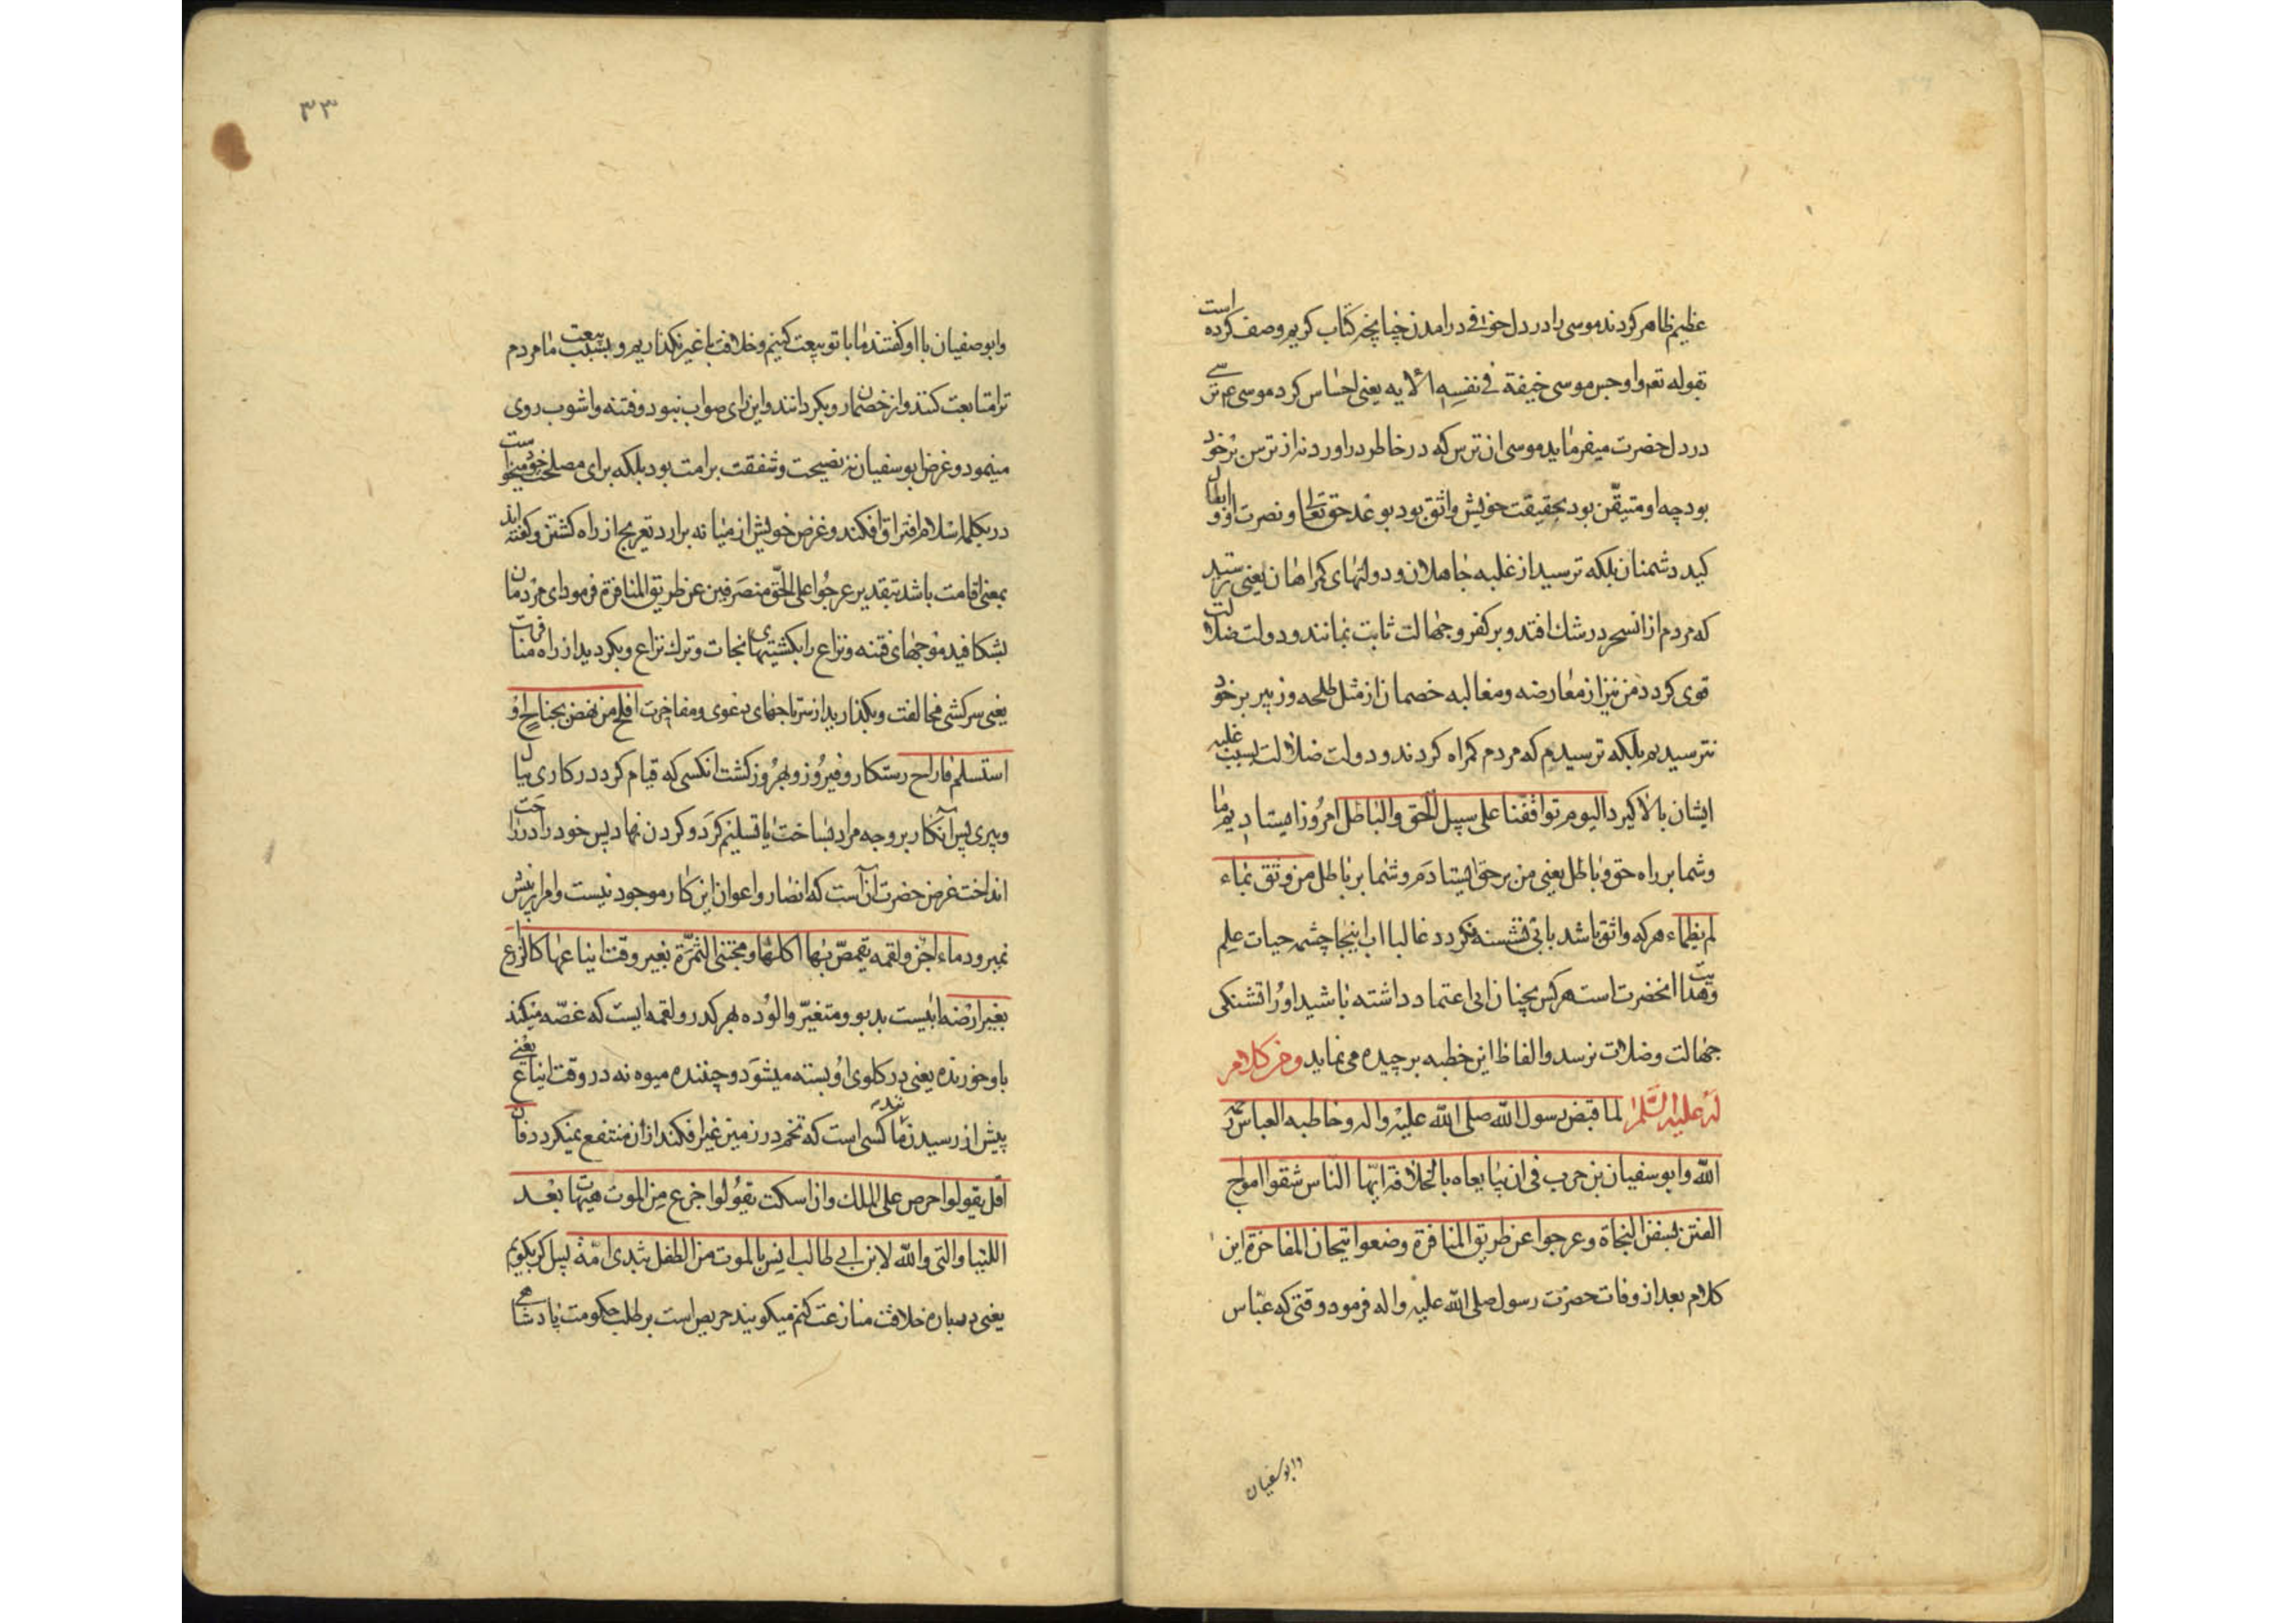 عظیم ظاهر کردند موسی را در دل خوفی در امدن چنانچه کتاب کریم وصف کرده است
بقوله تعم واوجس موسی خیفة فی نفسه الآیه یعنی احساس کرد موسی عم ترسی
در دل حضرت میفرماید موسی از ترس که در خاطر در اورد نه از ترس بر خود
بود چه او متیقن بود بحقیقت خویش واثق بود بوعد حق تعالی و نصرت او و ابطال
کید دشمنان بلکه ترسید از غلبه جاهلان و دولتهای کمراهان یعنی ترسید
که مردم از انسحر در شك افتد و بر کفر و جهالت ثابت بمانند و دولت ضلالت
قوی کردد من نیز از معارضه و مغالبه خصمان از مثل طلحه و زبیر بر خود
نترسیدیم بلکه ترسیدم که مردم کمراه کردند و دولت ضلالت بسبب غلبه
ایشان بالا کیرد الیوم تواقفنا علی سبیل الحق والباطل امروز ایستادیم ما
وشما بر راه حق و باطل یعنی من بر حق ایستادم و شما بر باطل من وثق بماء
لم یظماء هر که واثق باشد بابی تشنه نکردد غالبا اب اینجا چشمه حیات علم
وهدایت انحضرت است هرکس بچنان ابی اعتماد داشته باشید او را تشنکی
جهالت و ضلالت نرسد و الفاظ این خطبه بر چیده می نماید ومن کلام
له علیه السلم لما قبض رسول الله صلی الله علیه واله وخاطبه العباس رحمه
الله وابو سفیان بن حرب فی ان یبایعاه بالخلافة ایها الناس شقوا امواج
الفتن بسفن النجاة وعرجوا عن طریق المنافرة وضعوا تیجان المفاخرة این
کلام بعد از وفات حضرت رسول صلی الله علیه واله فرمود وقتی که عباس
وابو سفیان
۳۳
وابو صفیان با او کفتند ما با تو بیعت کنیم و خلافت با غیر نکذاریم و بسبب بیعت ما مردم
ترا متابعت کنند و از خصمان رو بکردانند و این رای صواب نبود و فتنه و اشوب روی
مینمود و غرض ابو سفیان نه نصیحت و شفقت بر امت بود بلکه برای مصلحت خود میخواست
در یکلمه اسلام افتراق افکند و غرض خویش از میانه برارد تعریج از راه کشتن و کفته اند
بمعنی اقامت باشد بتقدیر عرجوا علی الحق منصرفین عن طریق المنافرة فرمود ای مردمان
بشکافید موجهای فتنه و نزاع را بکشتیهای نجات و ترك نزاع و بکردید از راه منافرت
یعنی سرکشی مخالفت و بکذارید از سر تاجهای دعوی و مفاخرت افلح من نهض بجناح او
استسلم فاراح رستکار و فیروز و بهروز کشت انکسی که قیام کرد در کاری بیا
ویری پس آنکار بر وجه مراد بساخت یا تسلیم کرد و کردن نهاد پس خود را در راحت
انداخت غرض حضرت آن است که انصار و اعوان این کار موجود نیست و امر از پیش
نمیرود ماء اجن ولقمه یغص بها اکلها و مجتنی الثمرة بغیر وقت ایناعها کالزارع
بغیر ارضه ابیست بد بو و متغیر و الوده بهر کدر و لقمه ایست که غصه میکند
باو خورنده یعنی در کلوی او بسته میشود و چننده میوه نه در وقت ایناع یعنی
پیش از رسیدن مانند کسی است که تخم در زمین غیر افکند از ان منتفع نمیکردد فان
اقل یقولوا حرص علی الملك وان اسکت یقولوا جزع من الموت هیهات بعد
اللتیا والتی والله لابن ابی طالب انس بالموت من الطفل بثدی امه پس اکر بکویم
یعنی در باره خلافت منازعت کنم میکویند حریص است بر طلب حکومت پادشاهی